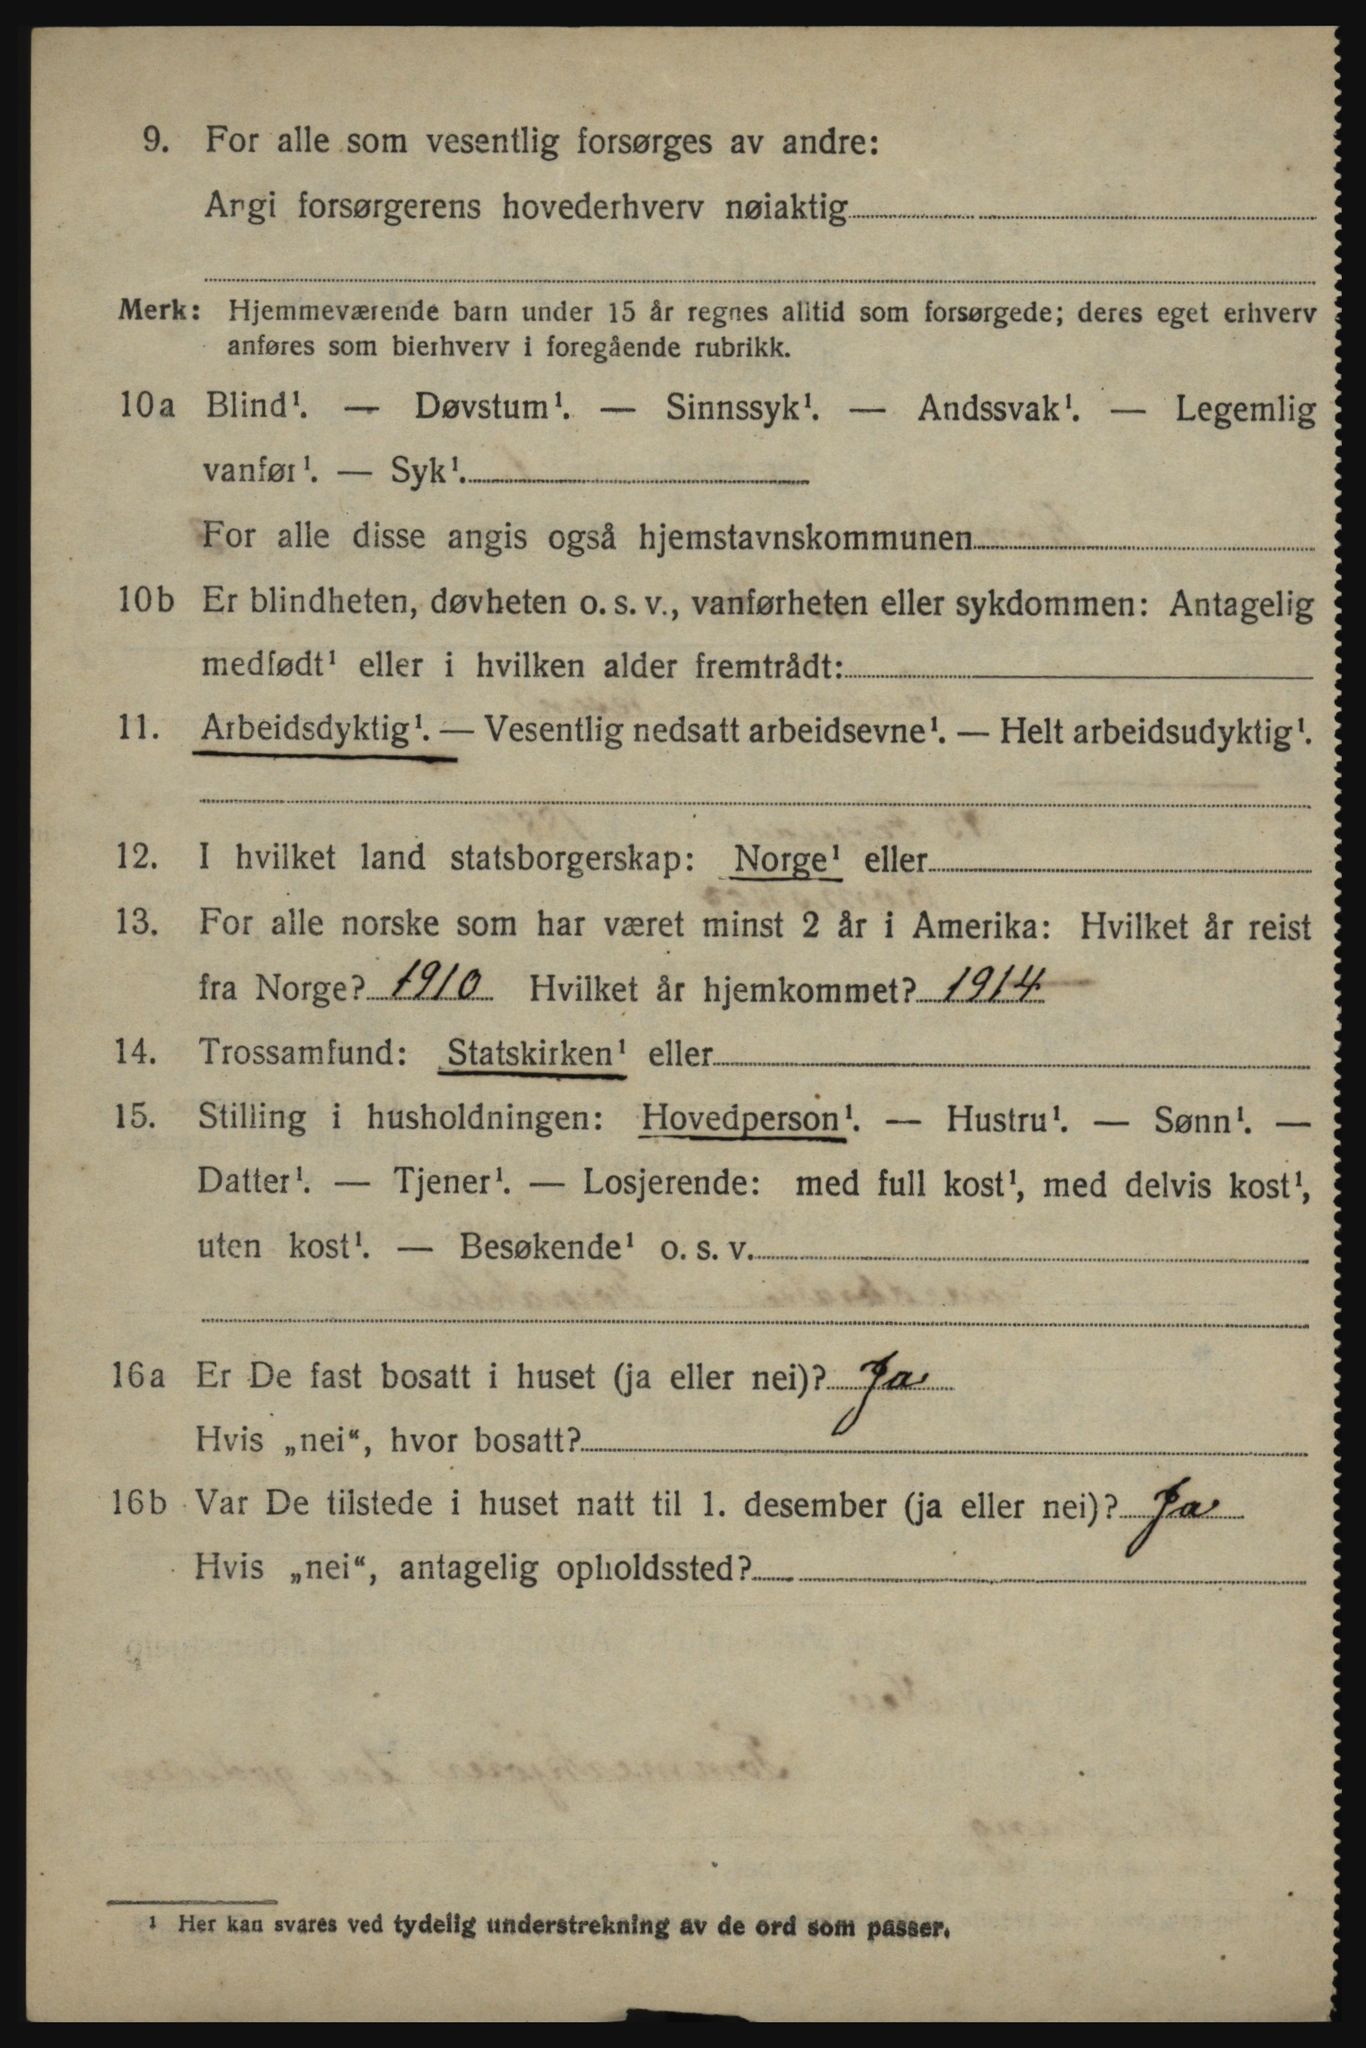 9. For alle som vesentlig forsørges av andre:
Angi forsørgerens hovederhverv nøiaktig
Merk: Hjemmeværende barn under 15 år regnes alltid som forsørgede; deres eget erhverv
anføres som bierhverv i foregående rubrikk.
10a Blind¹. — Døvstum¹. — Sinnssyk¹. — Andssvak¹. — Legemlig
vanfør¹. — Syk¹.
For alle disse angis også hjemstavnskommunen
10b Er blindheten, døvheten o. s. v., vanførheten eller sykdommen: Antagelig
medfødt¹ eller i hvilken alder fremtrådt:
11. Arbeidsdyktig¹. — Vesentlig nedsatt arbeidsevne¹. — Helt arbeidsudyktig¹.
12. I hvilket land statsborgerskap: Norge¹ eller
13. For alle norske som har været minst 2 år i Amerika: Hvilket år reist
fra Norge? 1910 Hvilket år hjemkommet? 1914
14. Trossamfund: Statskirken¹ eller
15. Stilling i husholdningen: Hovedperson¹. — Hustru¹. — Sønn¹. —
Datter¹. — Tjener¹. — Losjerende: med full kost¹, med delvis kost¹,
uten kost¹. — Besøkende¹ o. s. v.
16a Er De fast bosatt i huset (ja eller nei)? Ja
Hvis „nei“, hvor bosatt?
16b Var De tilstede i huset natt til 1. desember (ja eller nei)? Ja
Hvis „nei“, antagelig opholdssted?
¹ Her kan svares ved tydelig understrekning av de ord som passer.